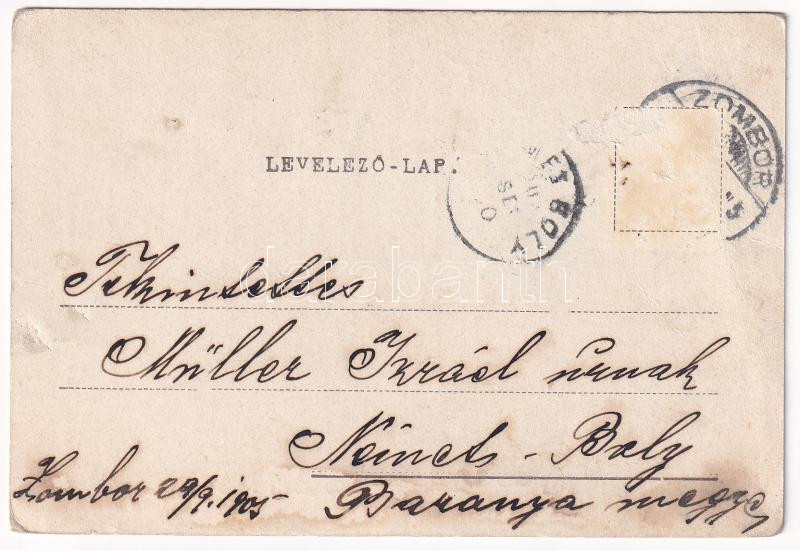 ZOMBOR
LEVELEZŐ-LAP.
BOLY
darabanth
Tekintetes
Müller Izráel úrnak
Német-Boly
Zombor 29/9. 1905
Baranya megye